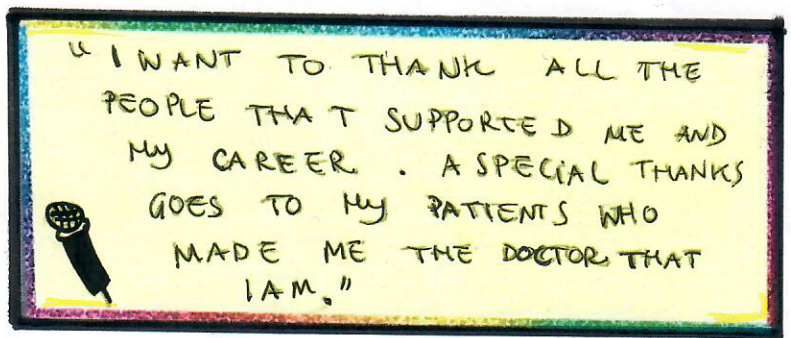 "I WANT TO THANK ALL THE
PEOPLE THAT SUPPORTED ME AND
My CAREER. A SPECIAL THANKS
GOES TO My PATIENTS WHO
MADE ME THE DOCTOR THAT
I AM."